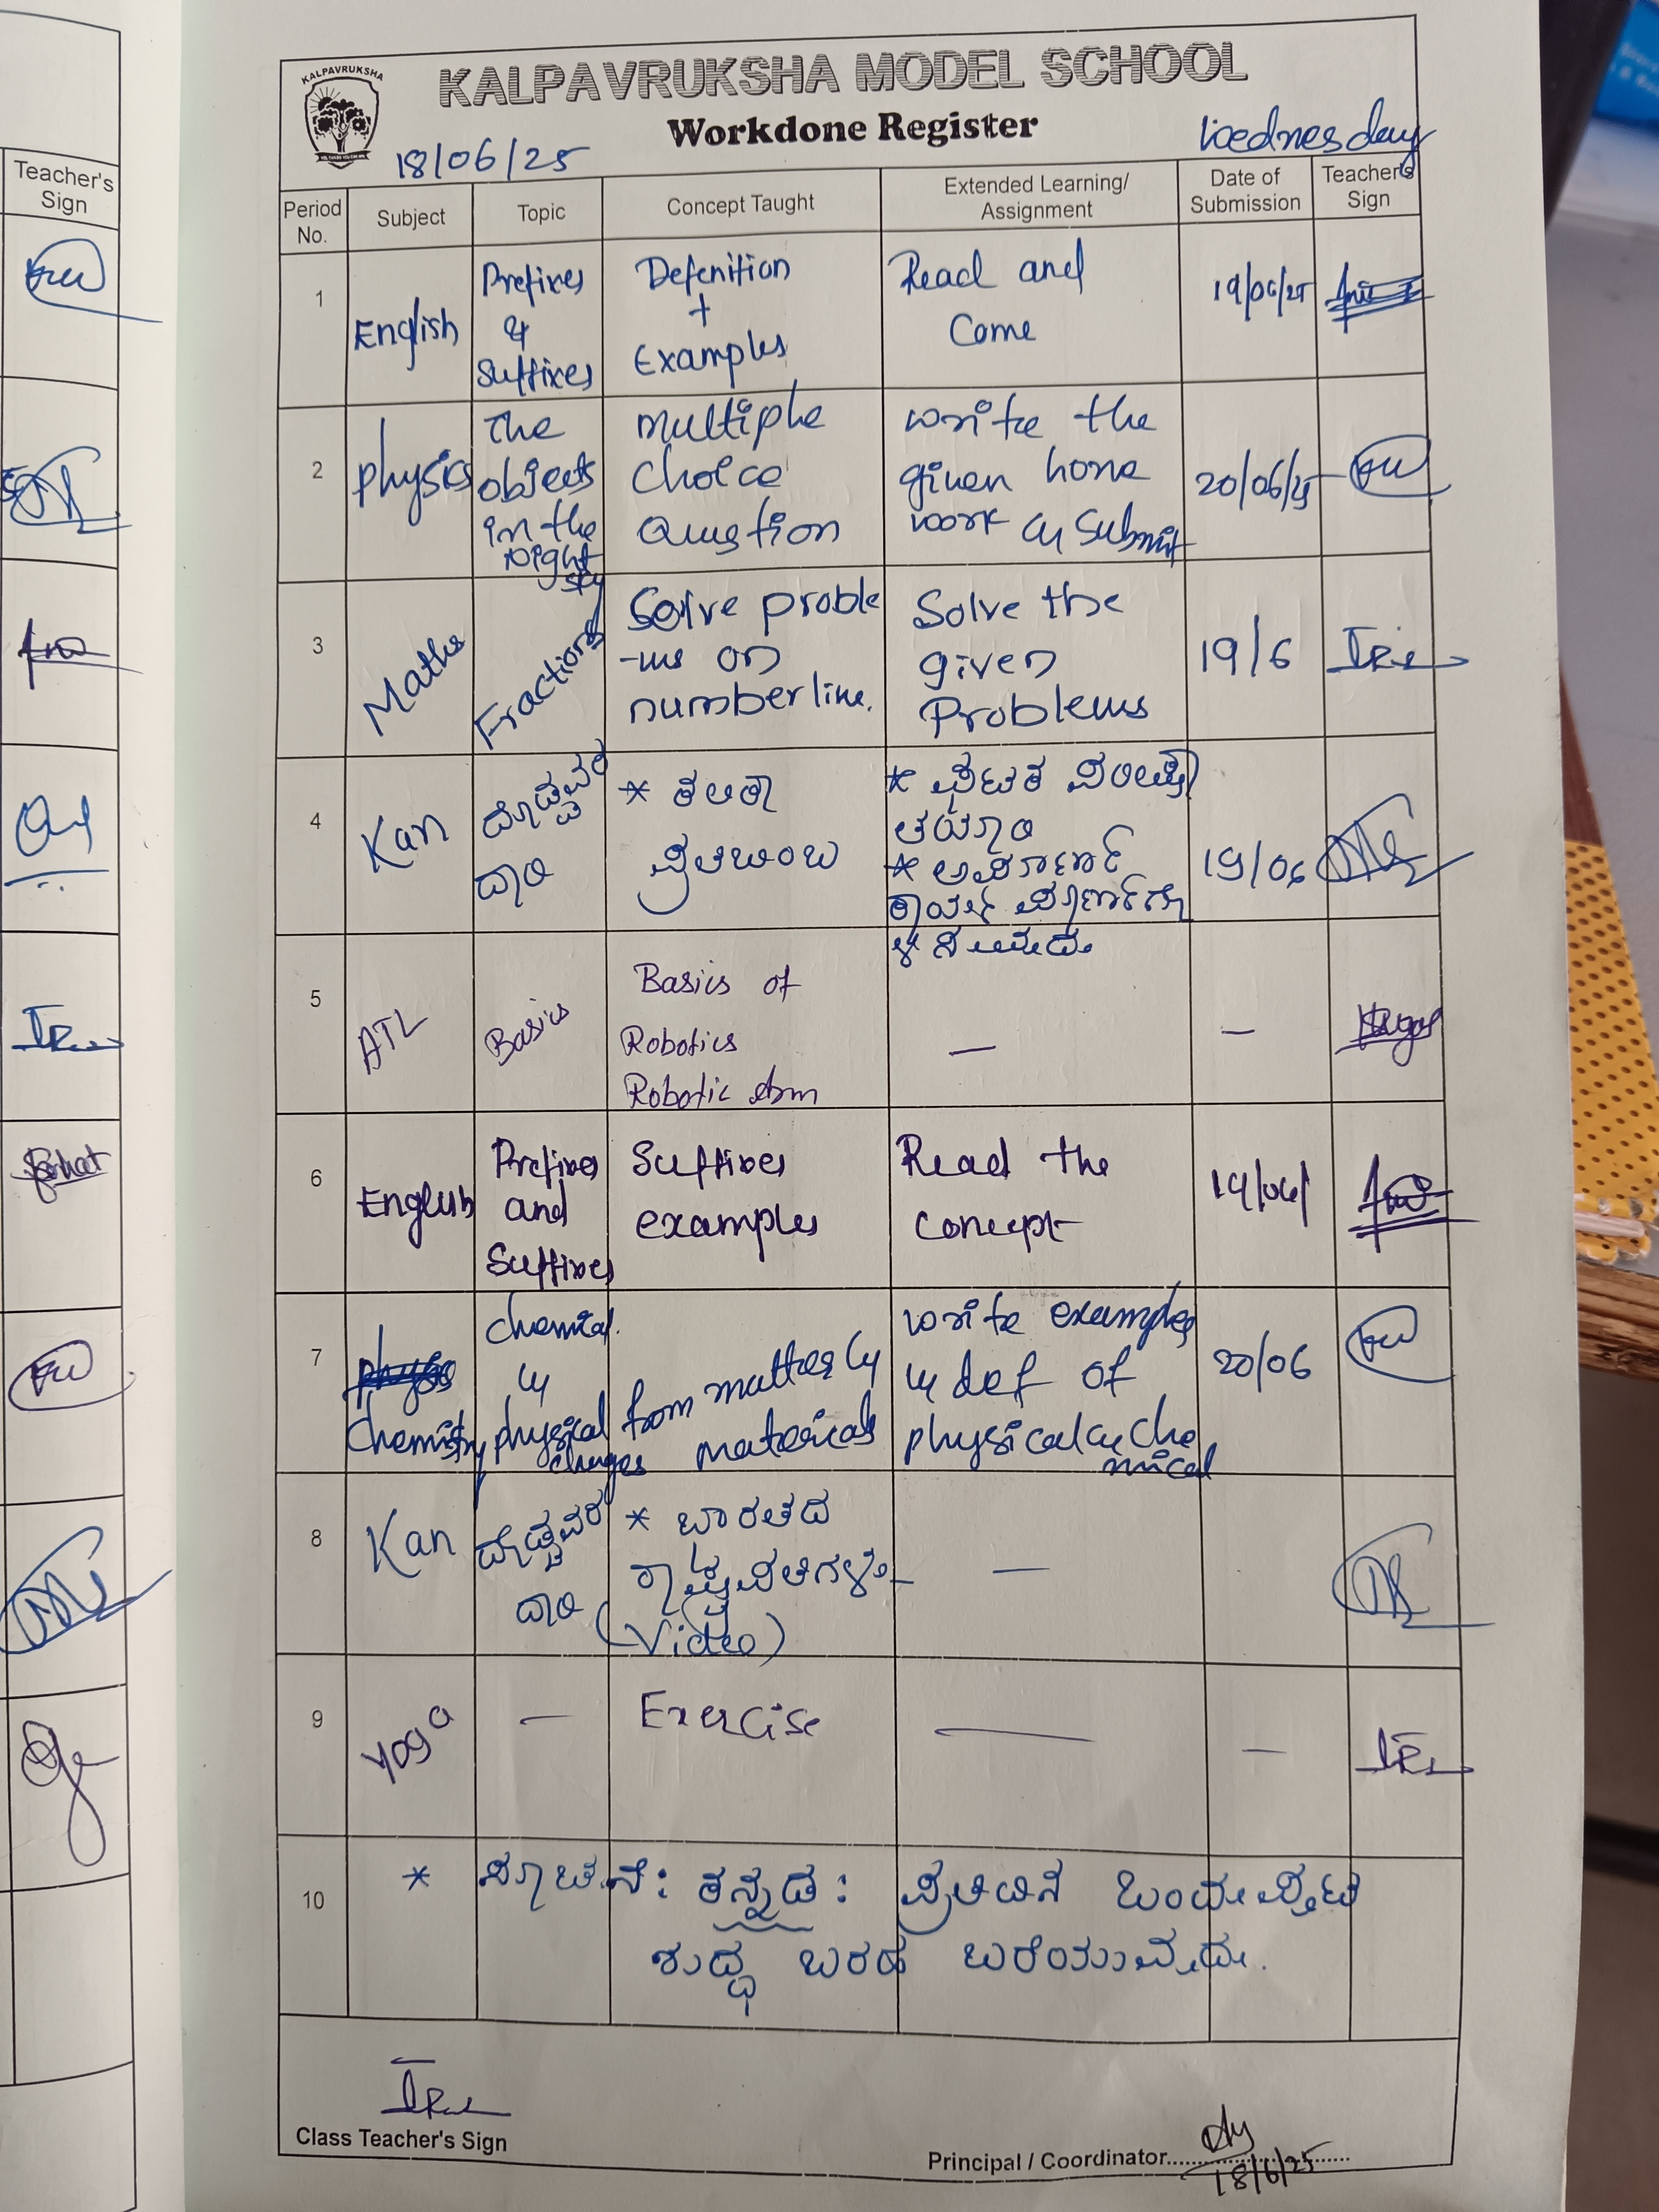 KALPAVRUKSHA
KALPAVRUKSHA MODEL SCHOOL
Workdone Register
18/06/25
Wednesday
Teacher's
Sign
Period
No.
Subject
Topic
Concept Taught
Extended Learning/
Assignment
Date of
Submission
Teacher's
Sign
1
English
Prefixes
&
Suffixes
Defenition
+
Examples
Read and
Come
19/06/25
2
physics
The
objects
in the
Night
sky
multiple
choice
Question
write the
given home
work & submit
20/06/25
3
Maths
Fractions
Solve proble
-ms on
number line.
Solve the
given
Problems
19/6
4
Kan
ದೊಡ್ಡವರ
ದಾರಿ
* ಕಲಿಕಾ
ಪ್ರತಿಬಿಂಬ
ತಯಾರಿ
19/06
5
ATL
Basics
Basics of
Robotics
Robotic Arm
—
—
6
English
Prefixes
and
Suffixes
Suffixes
examples
Read the
concept
19/06/
7
Chemistry
chemical
&
physical
changes
from matter &
materials
write examples
& def of
physical & che
mical
20/06
8
Kan
ದೊಡ್ಡವರ
ದಾರಿ
* ಭಾರತದ
ರಾಷ್ಟ್ರಪತಿಗಳು
(Video)
—
9
Yoga
—
Exercise
—
—
10
* ಸೂಚನೆ: ಕನ್ನಡ: ಪ್ರತಿದಿನ ಒಂದು ಪುಟ
ಶುದ್ಧ ಬರಹ ಬರೆಯುವುದು.
Class Teacher's Sign
Principal / Coordinator
18/6/25